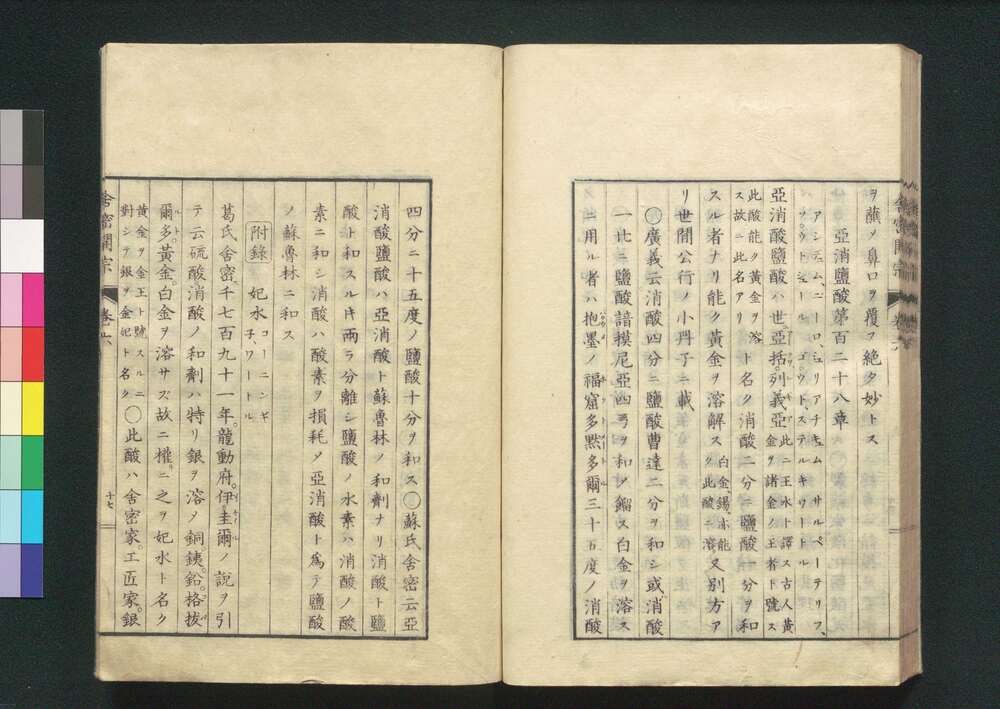 ヲ蘸メ鼻口ヲ覆フ絶タ妙トス
亞消鹽酸第百二十八章
アシデュム、ニーロ、ミュリアチキュム サルペーテリフ、
ソウトシュール ゴウド、ステルキワートル
亞消鹽酸ハ世亞括列義亞此ニ王水ト譯ス古人黄
金ヲ諸金ノ王者ト號ス
此酸能ク黄金ヲ溶
ス故ニ此名アリ
ト名ク消酸二分ニ鹽酸一分ヲ和
スル者ナリ能ク黄金ヲ溶解ス白金錫亦能
ク此酸ニ溶
又別方ア
リ世間公行ノ小冊子ニ載
〇廣義云消酸四分ニ鹽酸曹達二分ヲ和シ或消酸
一比ニ鹽酸諳摸尼亞四弓ヲ和メ餾ス白金ヲ溶ス
ニ用ル者ハ抱墨ノ福窟多黙多爾三十五度ノ消酸
四分ニ十五度ノ鹽酸十分ヲ和ス〇蘇氏舍密云亞
消酸鹽酸ハ亞消酸ト蘇魯林ノ和劑ナリ消酸ト鹽
酸ト和スル片兩ラ分離シ鹽酸ノ水素ハ消酸ノ酸
素ニ和シ消酸ハ酸素ヲ損耗メ亞消酸ト為テ鹽酸
ノ蘇魯林ニ和ス
附錄 妃水 コーニンギ
子、ワートル
葛氏舍密千七百九十一年龍動府伊圭爾ノ說ヲ引
テ云硫酸消酸ノ和劑ハ特リ銀ヲ溶メ銅銕鉛格拔
爾多黃金白金ヲ溶サズ故ニ權ニ之ヲ妃水ト名ク
黄金ヲ金王ト號スルニ
對シテ銀ヲ金妃ト名ク
〇此酸ハ舍密家工匠家銀
舍密開宗 卷六 十七